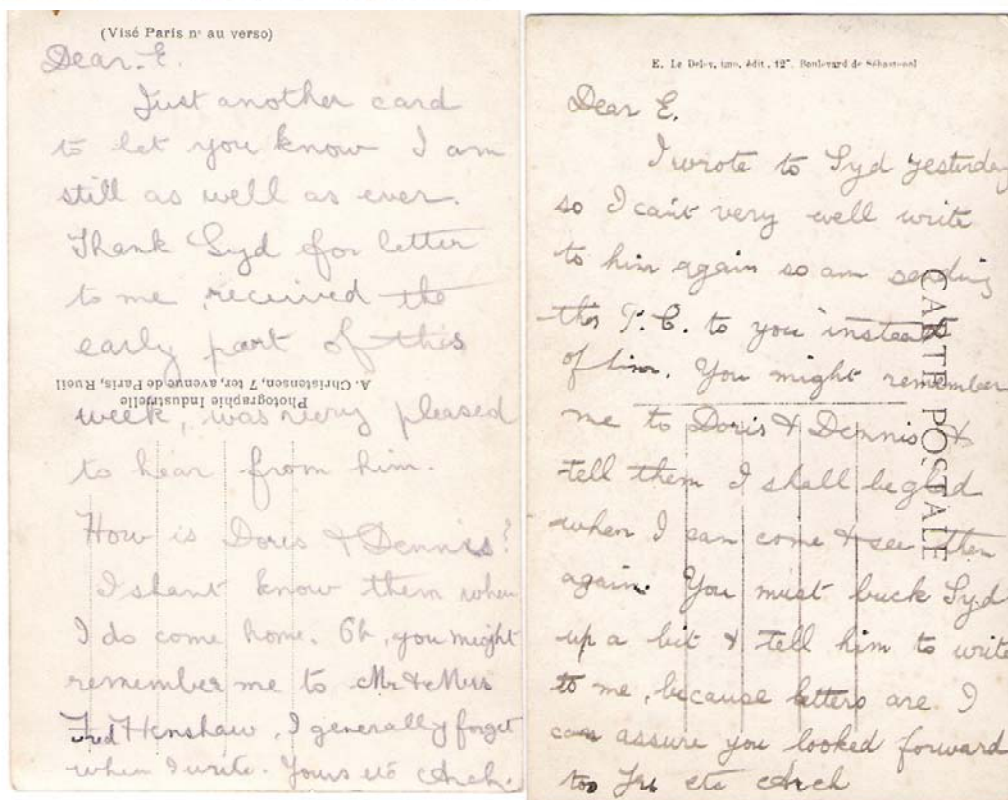 (Visé Paris nº au verso)
Dear. E.
Just another card
to let you know I am
still as well as ever.
Thank Syd for letter
to me received the
early part of this
A. Christensen, 7 ter, avenue de Paris, Rueil
Photographie Industrielle
week, was very pleased
to hear from him.
How is Doris & Dennis?
I shant know them when
I do come home. Oh, you might
remember me to Mr & Mrs
Fred Henshaw, I generally forget
when I write. Yours etc Arch.
E. Le Deley, imp. édit., 127, Boulevard de Sébastopol
Dear E.
I wrote to Syd yesterday
so I can't very well write
to him again so am sending
this P.C. to you instead
of him. You might remember
me to Doris & Dennis &
tell them I shall be glad
when I can come & see them
again. You must buck Syd
up a bit & tell him to write
to me, because letters are I
can assure you looked forward
too etc Arch
CARTE POSTALE